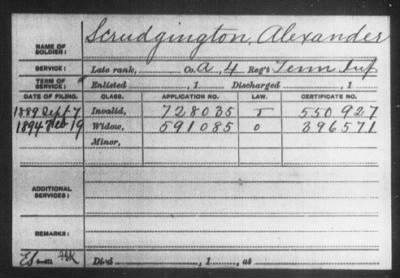 NAME OF SOLDIER: Scrudgington, Alexander
SERVICE: Late rank, Co. A, 4 Reg't Tenn Inf
TERM OF SERVICE: Enlisted , 1 Discharged , 1
DATE OF FILING. CLASS. APPLICATION NO. LAW. CERTIFICATE NO.
1889 Sept 7 Invalid, 728035 550927
1894 Feb 19 Widow, 591085 O 396571
Minor,
ADDITIONAL SERVICES:
REMARKS:
Died , 1 , at